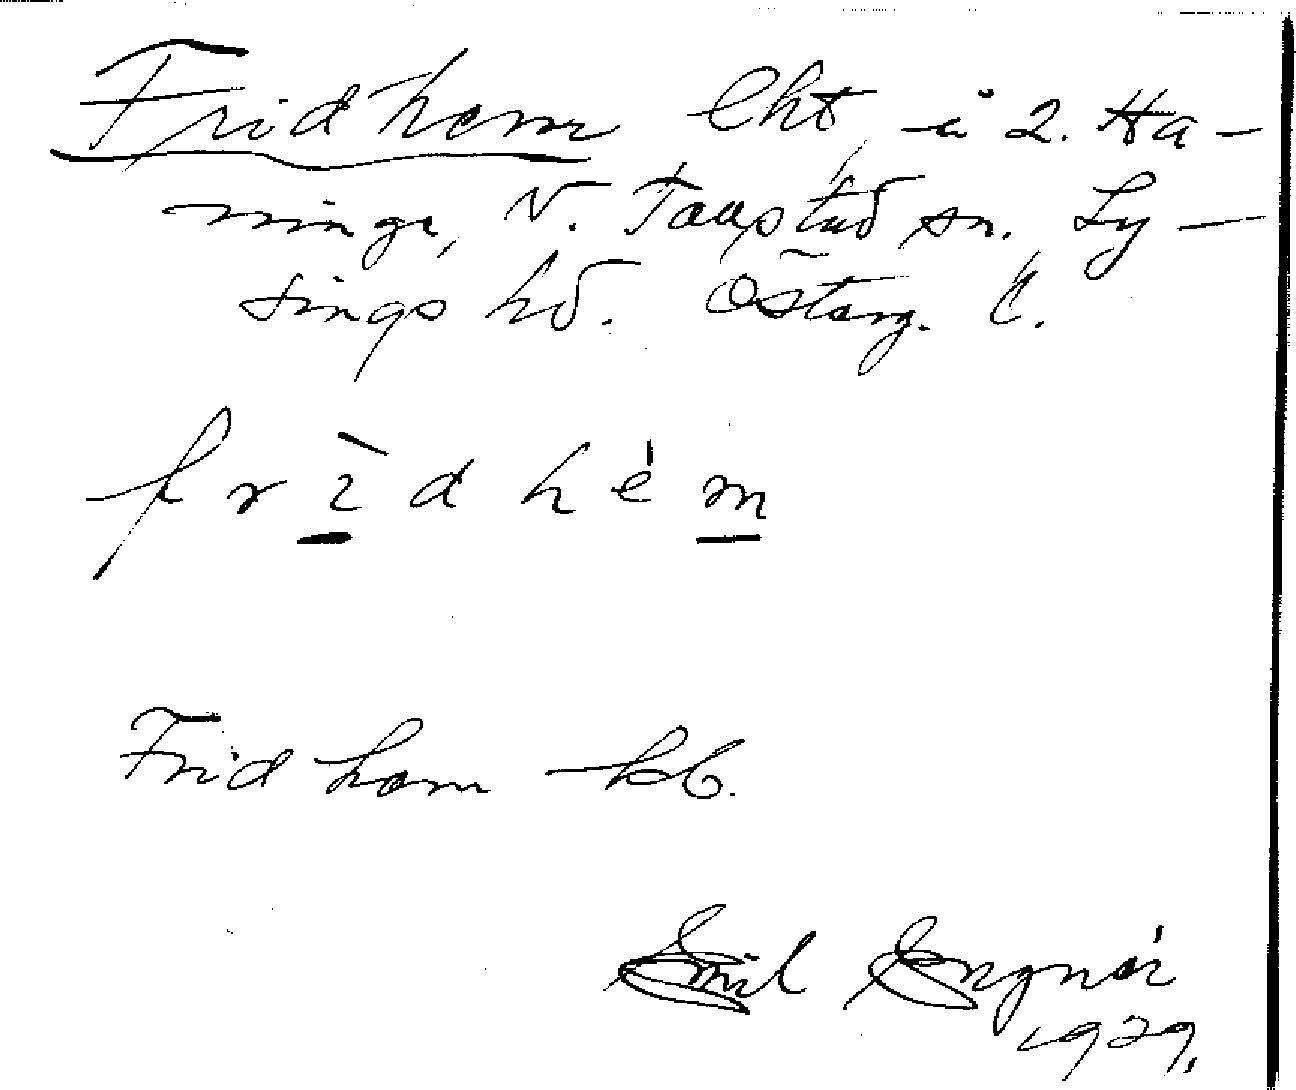 Fridhem lht, i 2. Ha-
ninge, V. Tollstad sn. Ly-
sings hd. Österg. l.
f r i d h e m
Fridhem kb.
Emil
1929.